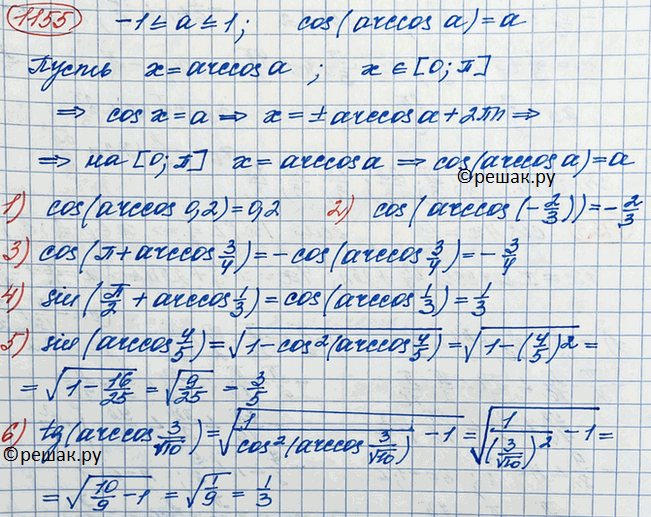 1155 -1 ≤ a ≤ 1; cos(arccos a) = a
Пусть x = arccos a ; x ∈ [0; π]
⇒ cos x = a ⇒ x = ± arccos a + 2πn ⇒
⇒ на [0; π] x = arccos a ⇒ cos(arccos a) = a
©решак.ру
1) cos(arccos 0,2) = 0,2 2) cos(arccos(-2/3)) = -2/3
3) cos(π + arccos 3/4) = -cos(arccos 3/4) = -3/4
4) sin(π/2 + arccos 1/3) = cos(arccos 1/3) = 1/3
5) sin(arccos 4/5) = √(1 - cos²(arccos 4/5)) = √(1 - (4/5)²) =
= √(1 - 16/25) = √(9/25) = 3/5
6) tg(arccos 3/√10) = √(1/cos²(arccos 3/√10) - 1) = √(1/(3/√10)² - 1) =
©решак.ру
= √(10/9 - 1) = √(1/9) = 1/3